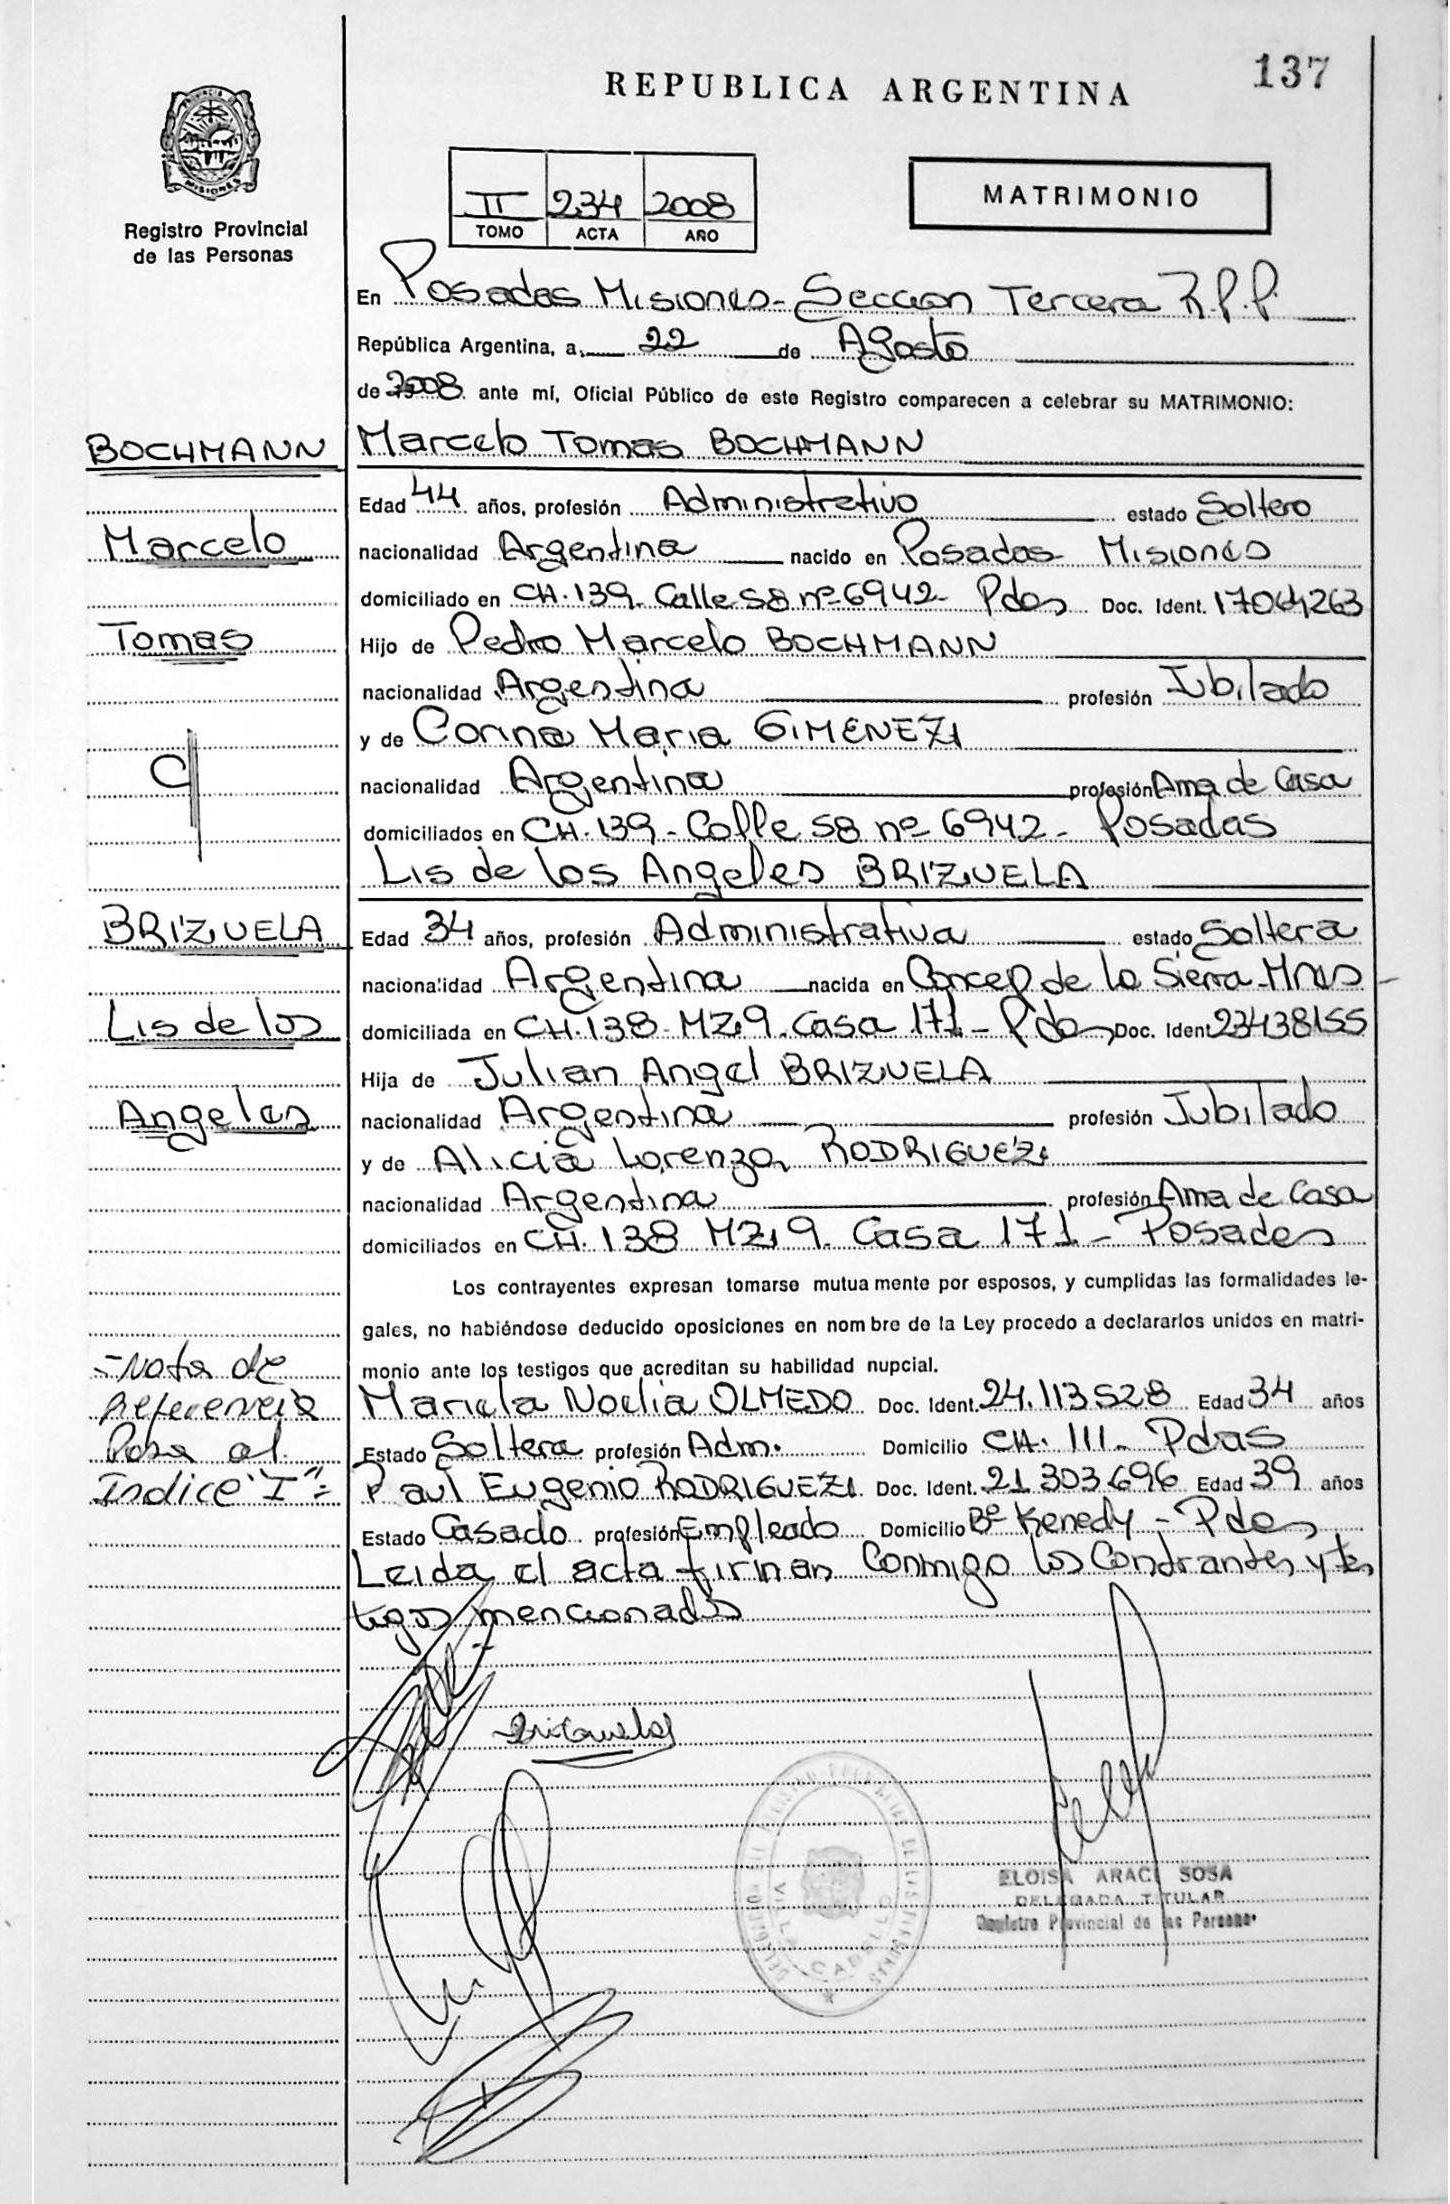 137
REPUBLICA ARGENTINA
PROVINCIA DE
MISIONES
Registro Provincial
de las Personas
II 234 2008
TOMO ACTA AÑO
MATRIMONIO
En Posadas Misiones - Seccion Tercera R.P.P.
República Argentina, a 22 de Agosto
de 2008 ante mí, Oficial Público de este Registro comparecen a celebrar su MATRIMONIO:
BOCHMANN
Marcelo
Tomas
C/
BRIZUELA
Lis de los
Angeles
Marcelo Tomas BOCHMANN
Edad 44 años, profesión Administrativo estado Soltero
nacionalidad Argentina nacido en Posadas Misiones
domiciliado en CH. 139. Calle 58 nº 6942- Pdas Doc. Ident. 17064263
Hijo de Pedro Marcelo BOCHMANN
nacionalidad Argentina profesión Jubilado
y de Corina Maria GIMENEZ
nacionalidad Argentina profesión Ama de Casa
domiciliados en CH. 139 - Calle 58 nº 6942 - Posadas
Lis de los Angeles BRIZUELA
Edad 34 años, profesión Administrativa estado Soltera
nacionalidad Argentina nacida en Concep de la Sierra - Mnes
domiciliada en CH. 138 MZ 9. Casa 171 - Pdas Doc. Ident 23438155
Hija de Julian Angel BRIZUELA
nacionalidad Argentina profesión Jubilado
y de Alicia Lorenza RODRIGUEZ
nacionalidad Argentina profesión Ama de Casa
domiciliados en CH. 138 MZ 9. Casa 171 - Posadas
Los contrayentes expresan tomarse mutuamente por esposos, y cumplidas las formalidades le-
gales, no habiéndose deducido oposiciones en nombre de la Ley procedo a declararlos unidos en matri-
monio ante los testigos que acreditan su habilidad nupcial.
=Nota de
Referencia
Pasa al
Indice "I"=
Mariela Noelia OLMEDO Doc. Ident. 24.113528 Edad 34 años
Estado Soltera profesión Adm. Domicilio CH. 111 - Pdas
Paul Eugenio RODRIGUEZ Doc. Ident. 21 303.696 Edad 39 años
Estado Casado profesión Empleado Domicilio Bº Kenedy - Pdas
Leida el acta firman Conmigo los Contrantes y tes
tigos mencionados
VILLA CABELLO
ELOISA ARACI SOSA
DELEGADA TITULAR
Registro Provincial de las Personas